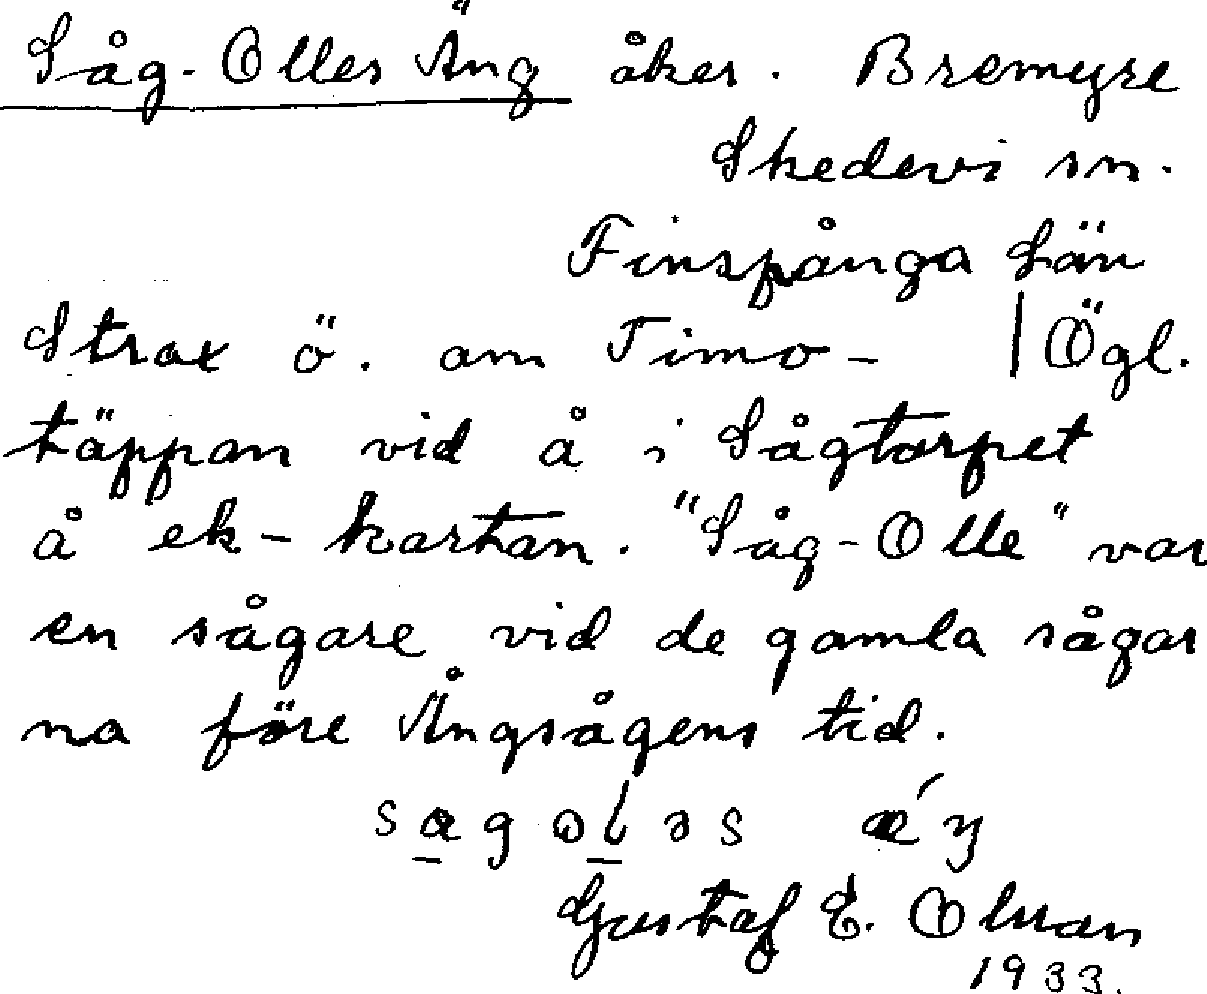 Såg-Olles Äng åker. Bremyre
Skedevi sn.
Finspånga Län
Strax ö. om Timo- | Ögl.
täppan vid å i Sågtorpet
å ek-kartan. "Såg-Olle" var
en sågare vid de gamla sågar
na före Ångsågens tid.
Gustaf E. Olsson
1933.